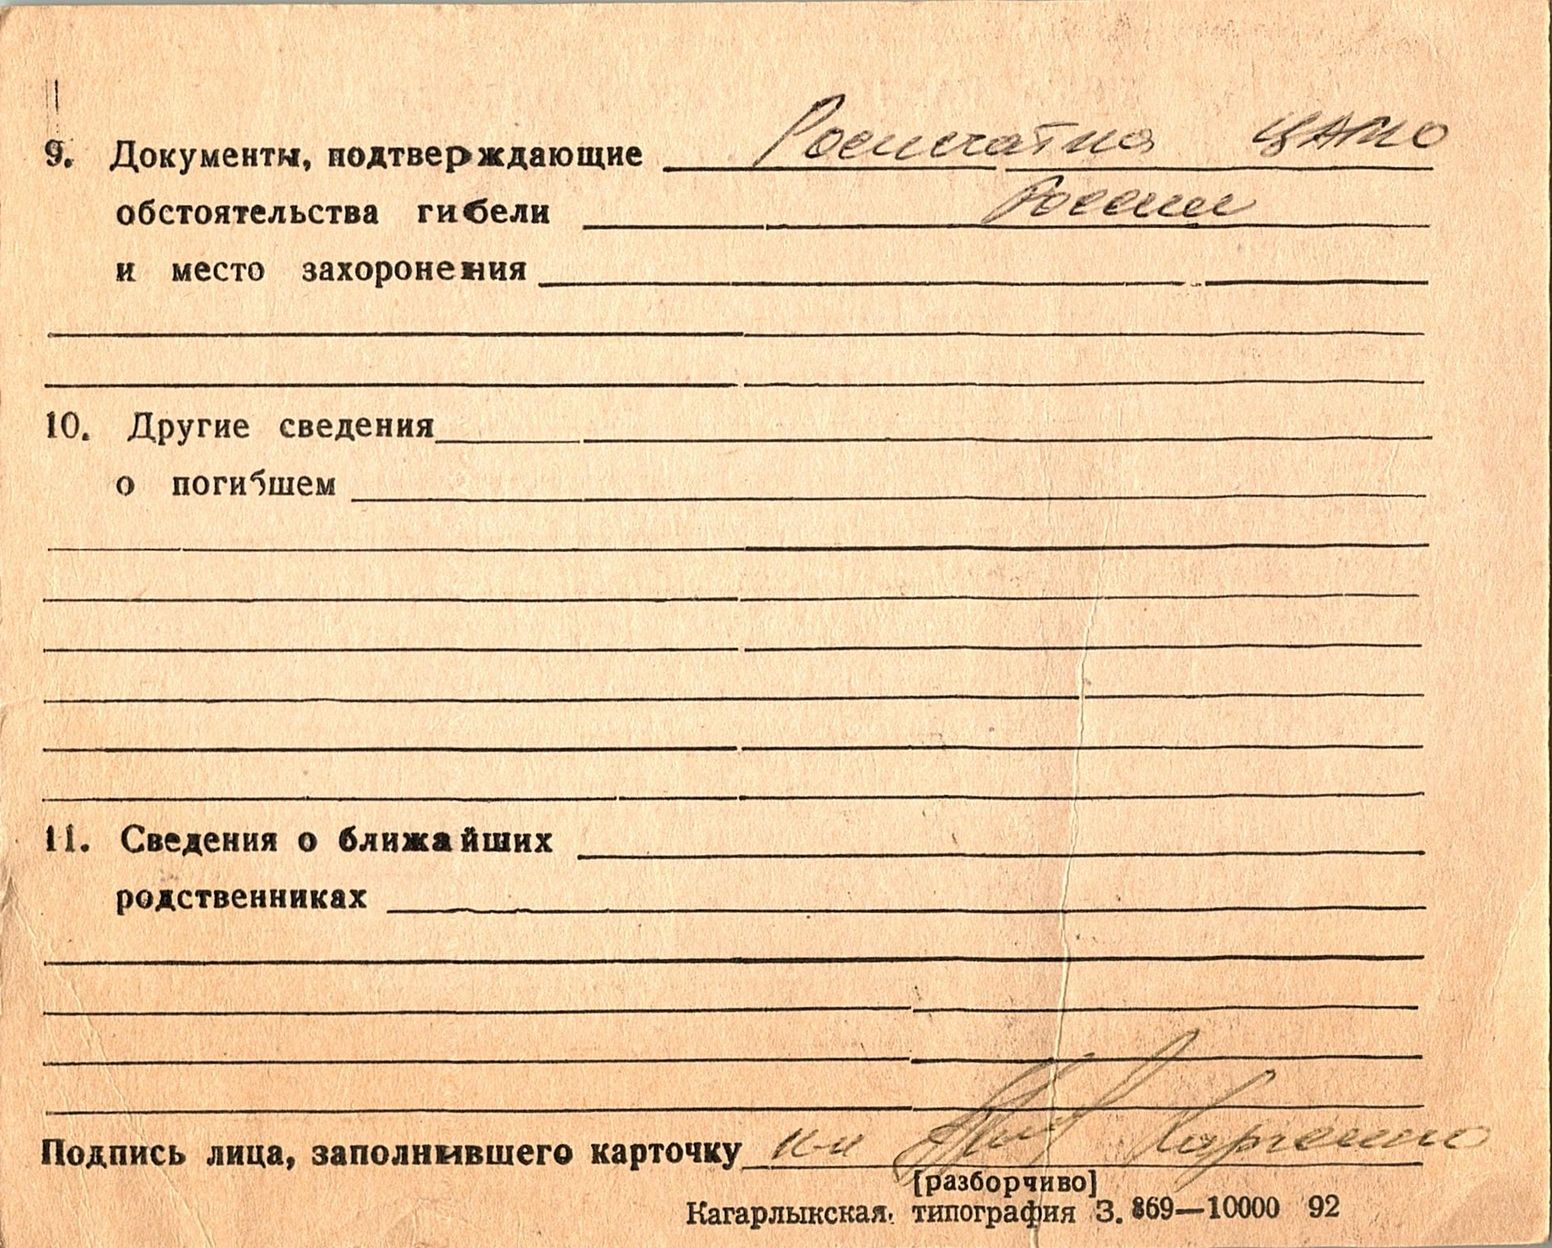 9. Документы, подтверждающие Роспечатка ЦАМО
обстоятельства гибели России
и место захоронения
10. Другие сведения
о погибшем
11. Сведения о ближайших
родственниках
Подпись лица, заполнившего карточку Харченко
[разборчиво]
Кагарлыкская типография З. 869—10000 92